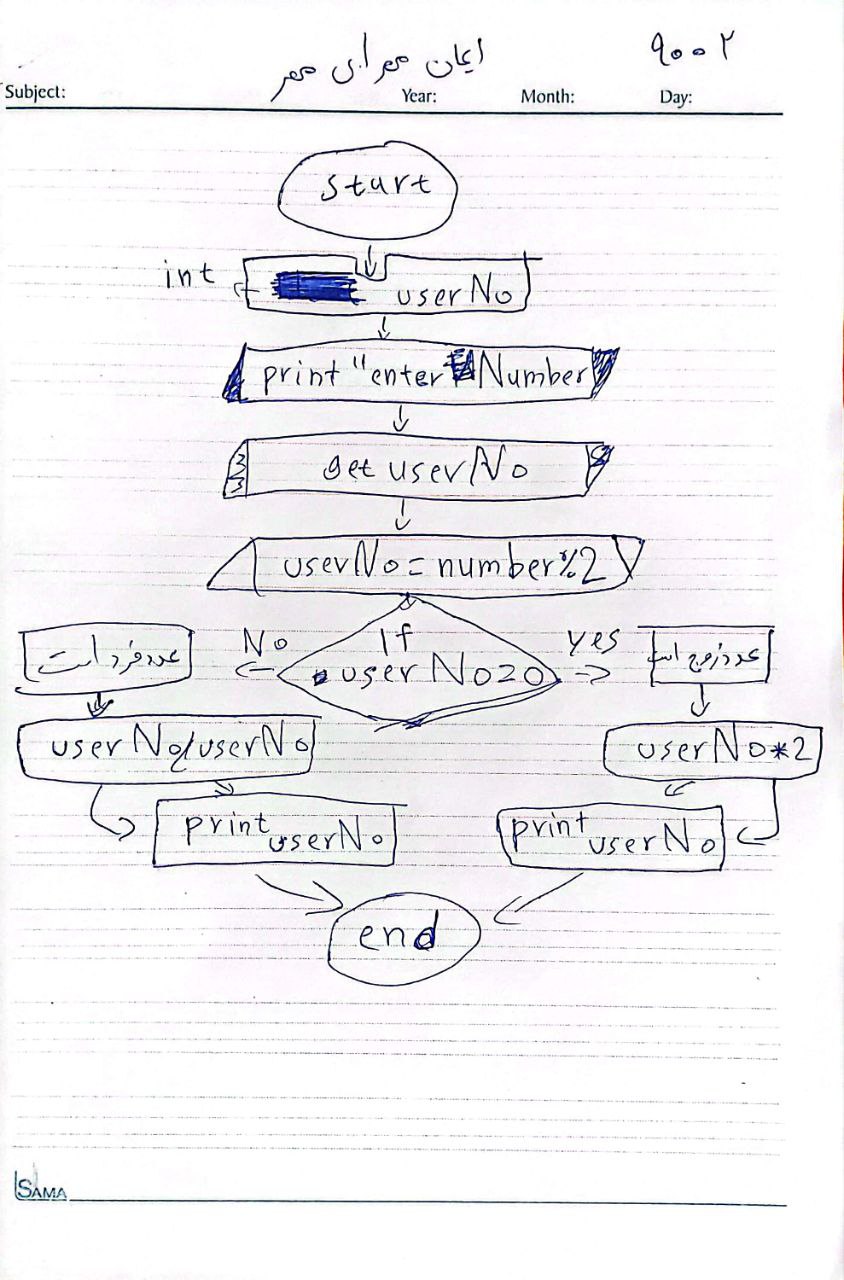 ایمان مهرابی مهر ۹۰۰۲
Subject: Year: Month: Day:
start
int userNo
print "enter Number
get userNo
userNo = number%2
If
userNo=0
No yes
عدد فرد است عدد زوج است
userNo/userNo userNo*2
print userNo print userNo
end
SAMA